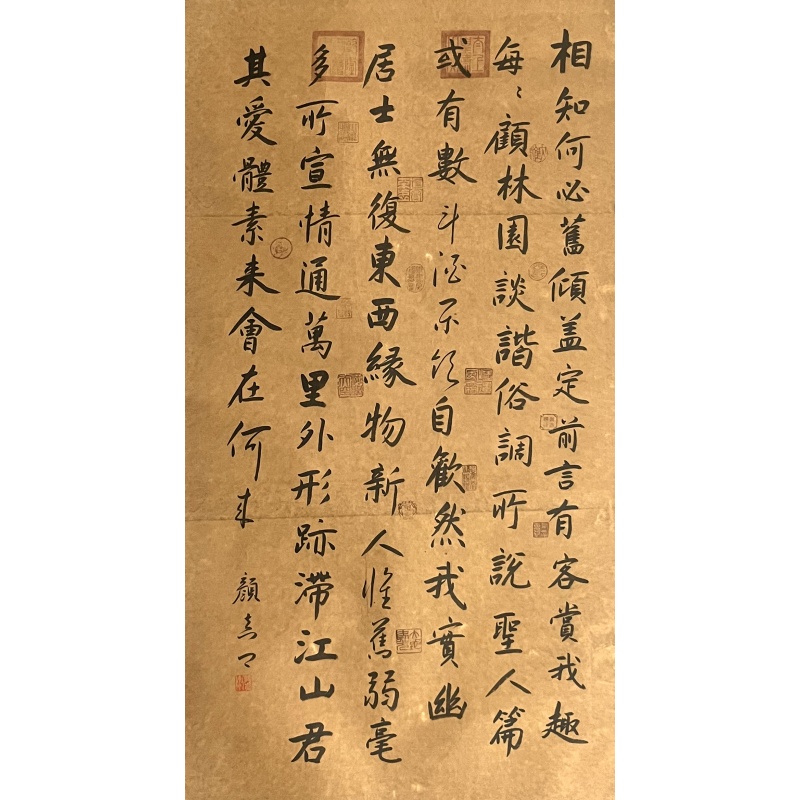 相知何必舊傾盖定前言有客賞我趣
每〻顧林園談諧俗調所說聖人篇
或有數斗酒自歡然我實幽
居士無復東西緣物新人惟舊弱毫
多所宣情通萬里外形跡滯江山君
其愛體素来會在何年
顏真卿